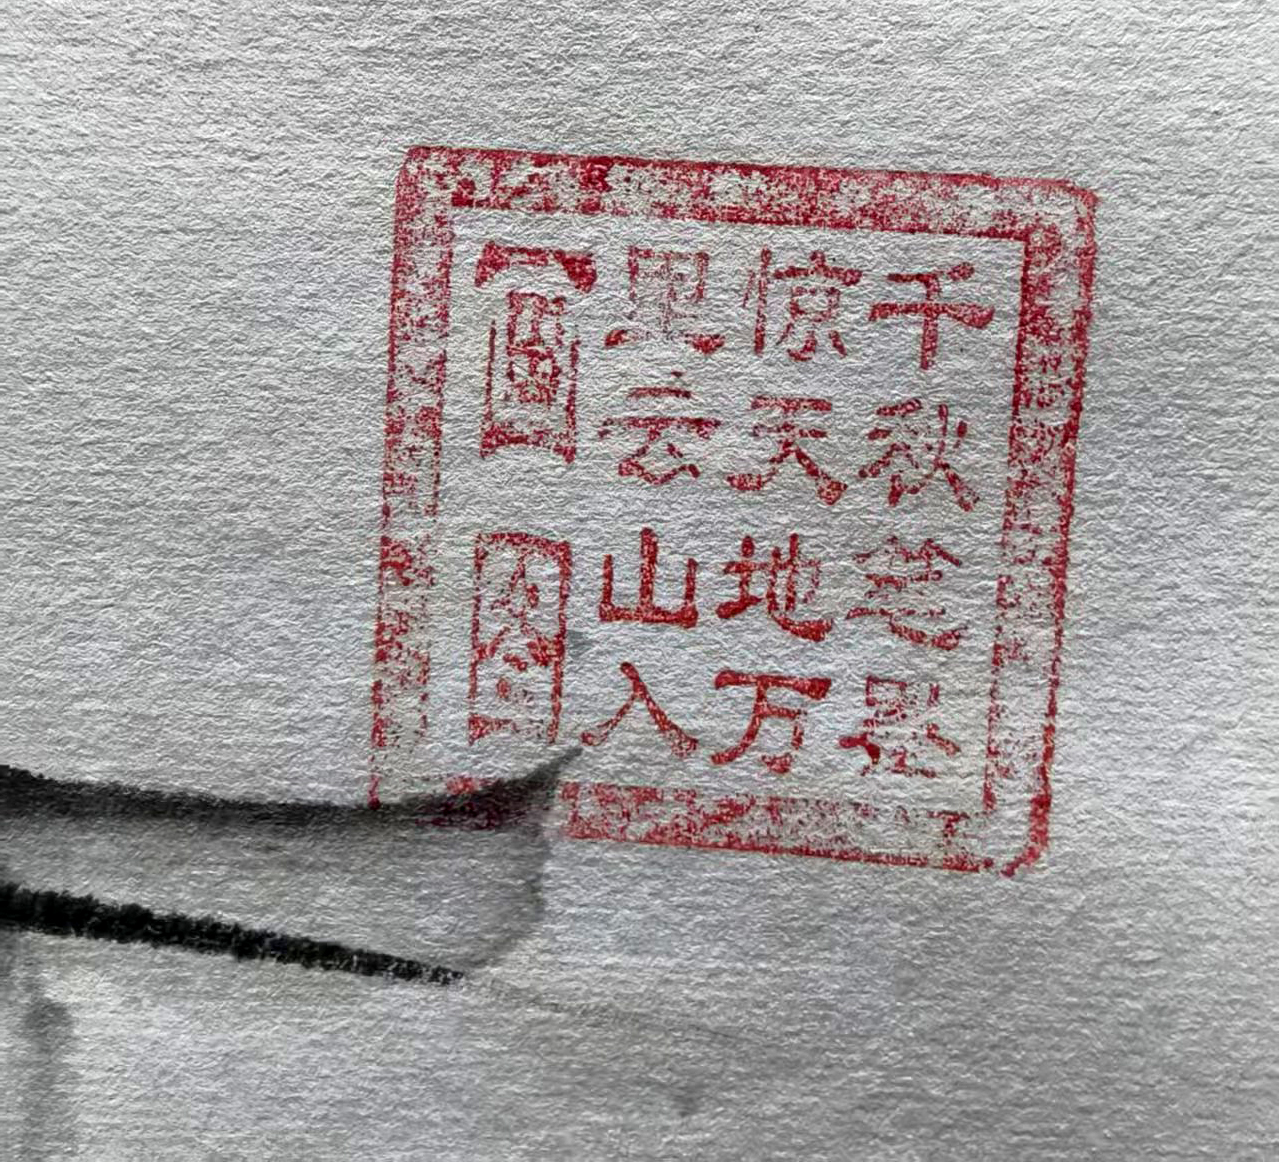 千秋笔墨
惊天地万
里云山入
画图